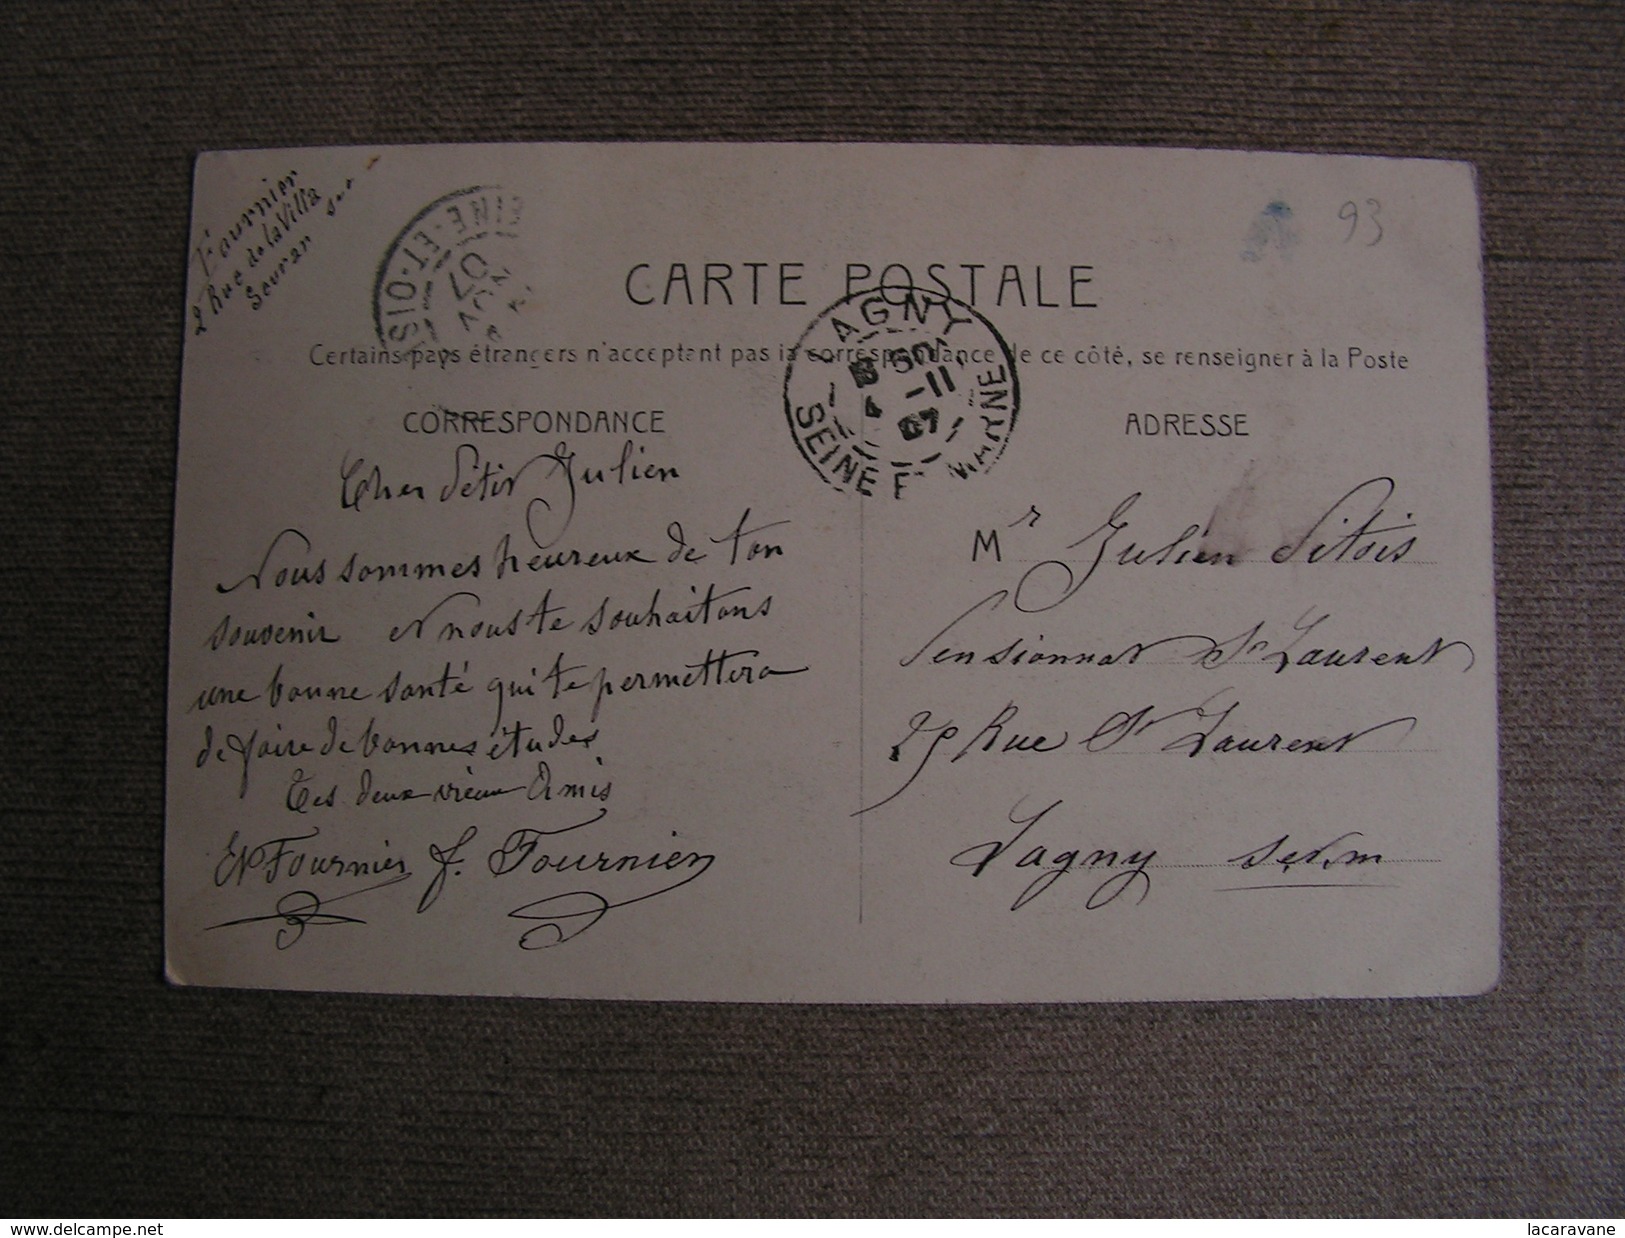 Fournier
2 Rue de la Villa
Sevran
93
SEINE-ET-OISE
07
CARTE POSTALE
LAGNY
SEINE ET MARNE
5-11
07
Certains pays étrangers n'acceptant pas la correspondance de ce côté, se renseigner à la Poste
CORRESPONDANCE
Cher Petit Julien
Nous sommes heureux de ton
souvenir et nous te souhaitons
une bonne santé qui te permettera
de faire de bonnes études
Tes deux vieux Amis
Et Fournier f. Fournier
ADRESSE
Mr Julien Pitois
Pensionnat St Laurent
29 Rue St Laurent
Lagny set.m
www.delcampe.net
lacaravane